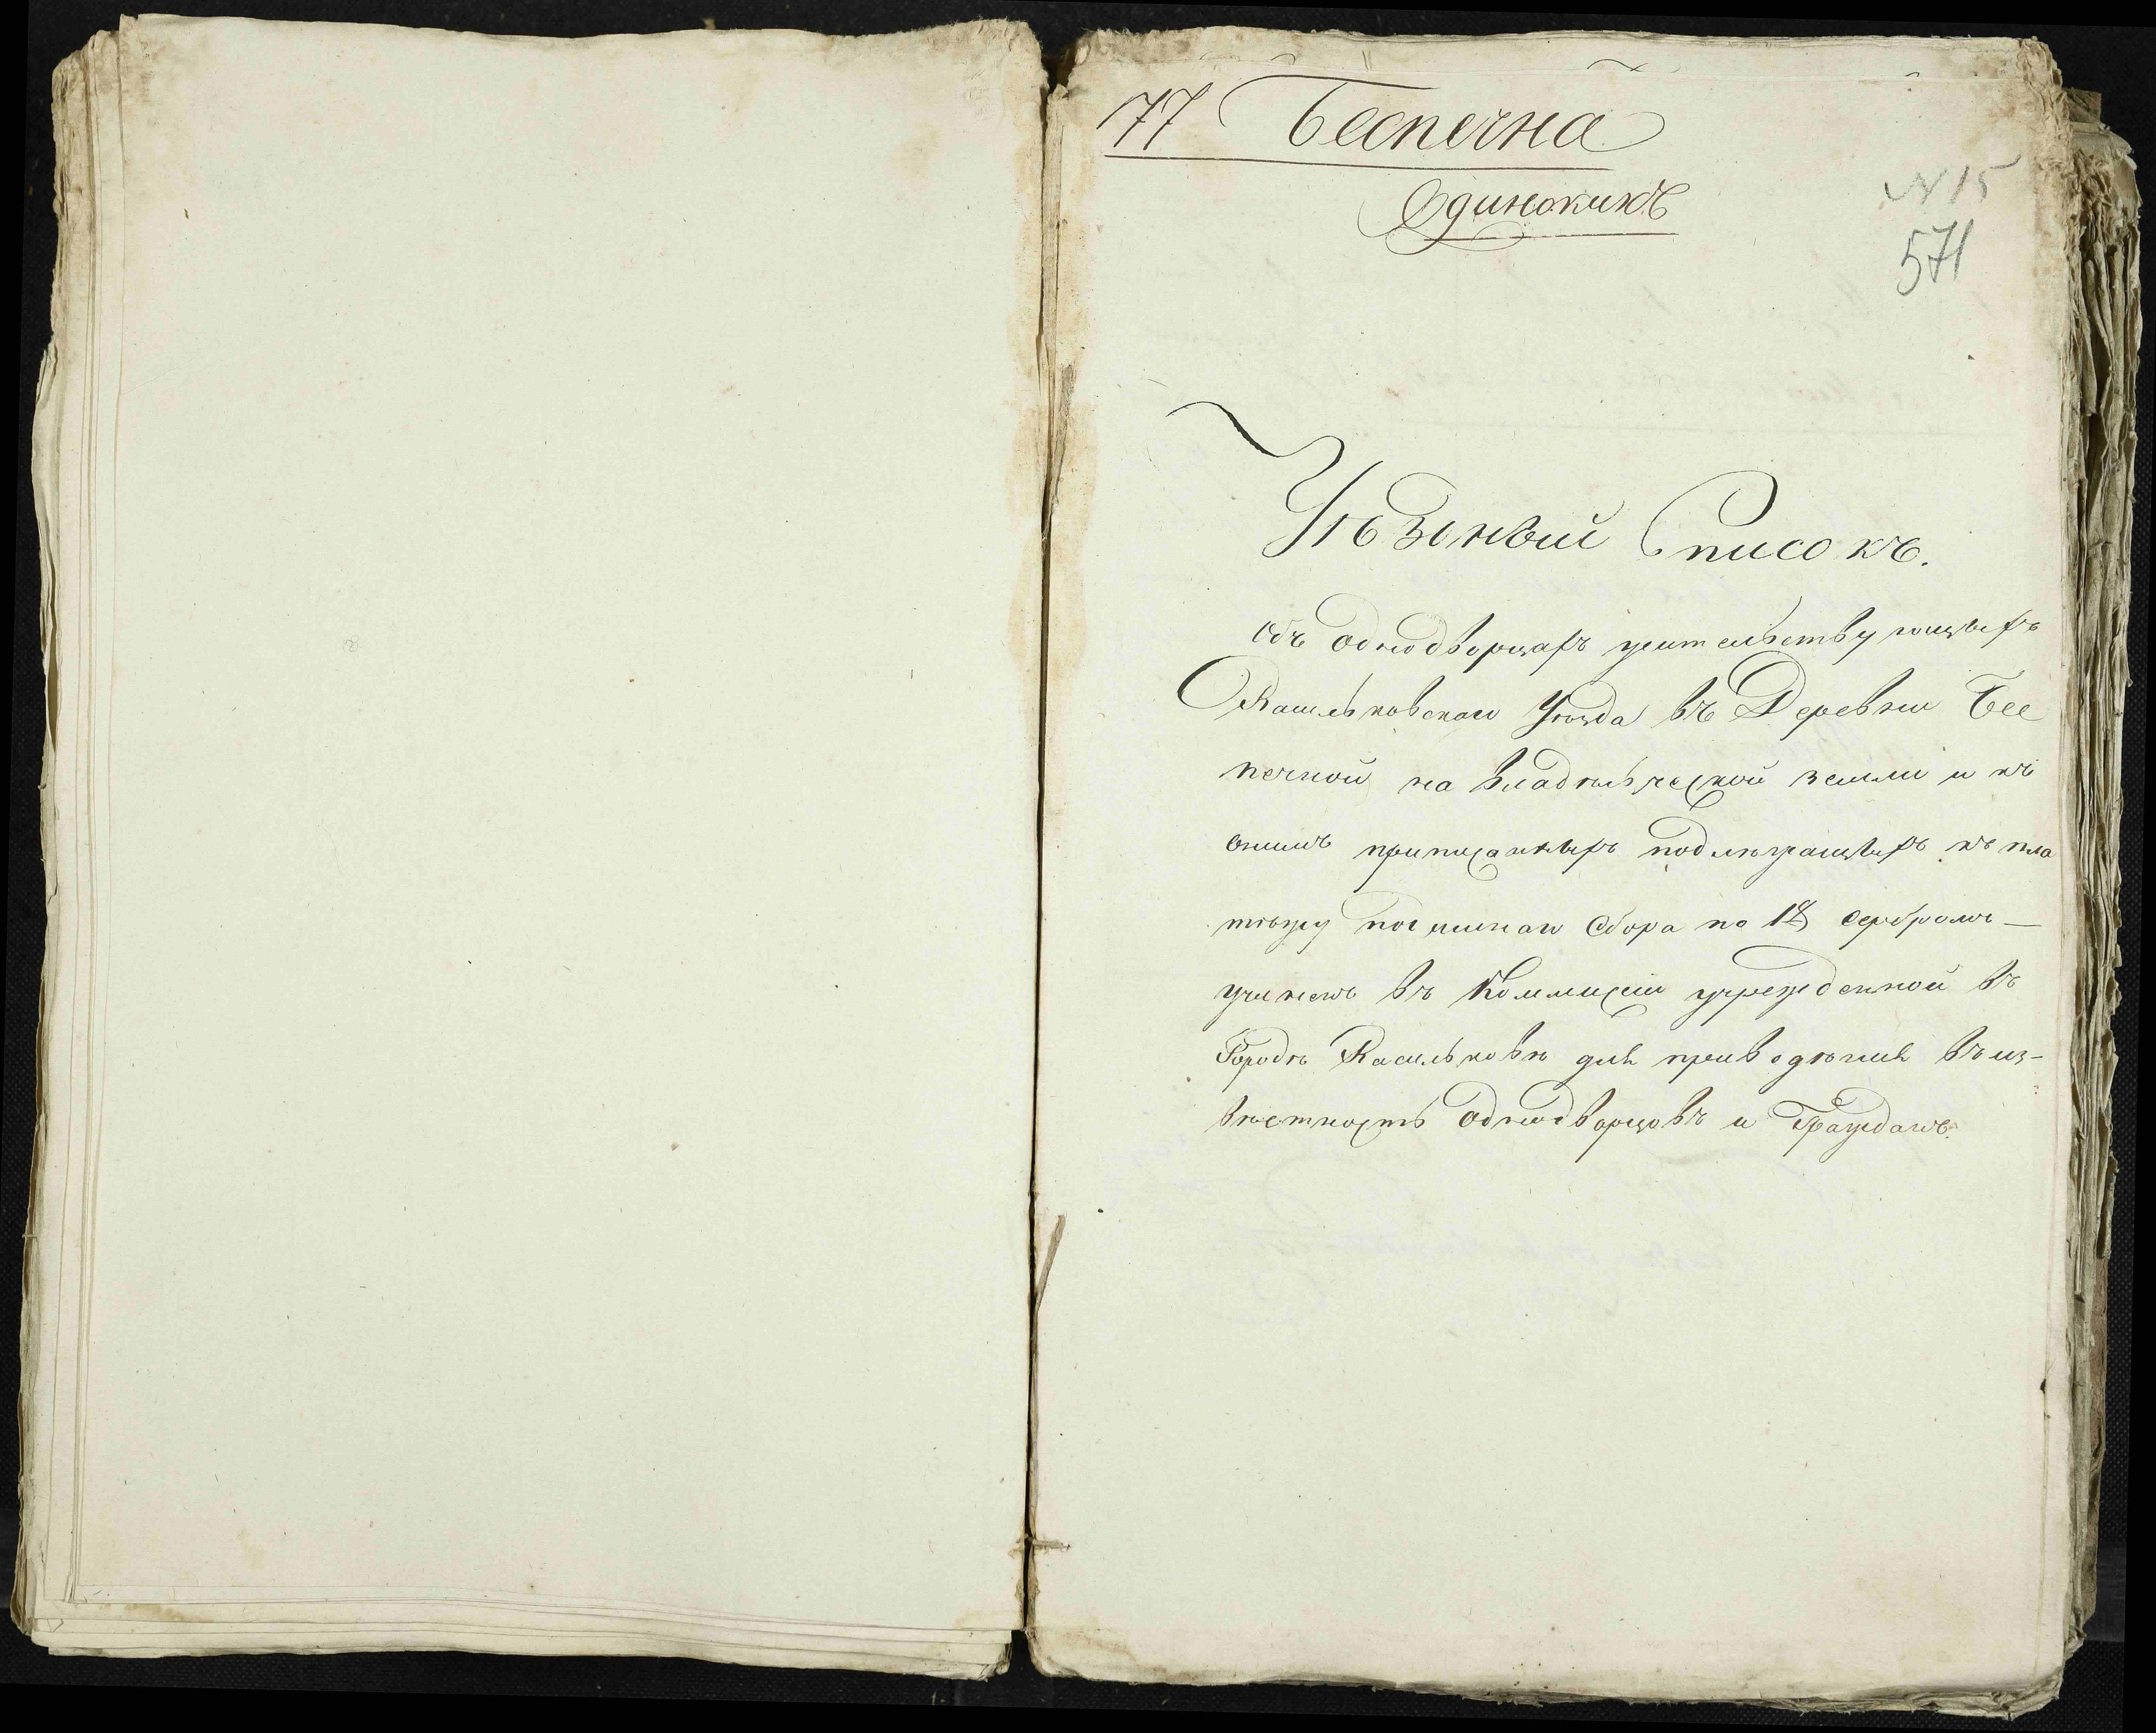 77 Беспечна
Одинокихъ
N 15
571
Уѣздный Списокъ.
Объ однодворцахъ жительствующихъ
Васильковскаго Уѣзда въ Деревни Бес
печной на владѣльческой земли и къ
онымъ приписанныхъ подлежащихъ къ пла
тежу подымнаго сбора по 18 серебромъ —
учиненъ въ Коммисіи учрежденной въ
Городѣ Васильковѣ для приведѣнія въ из-
вѣстность однодворцовъ и Гражданъ.